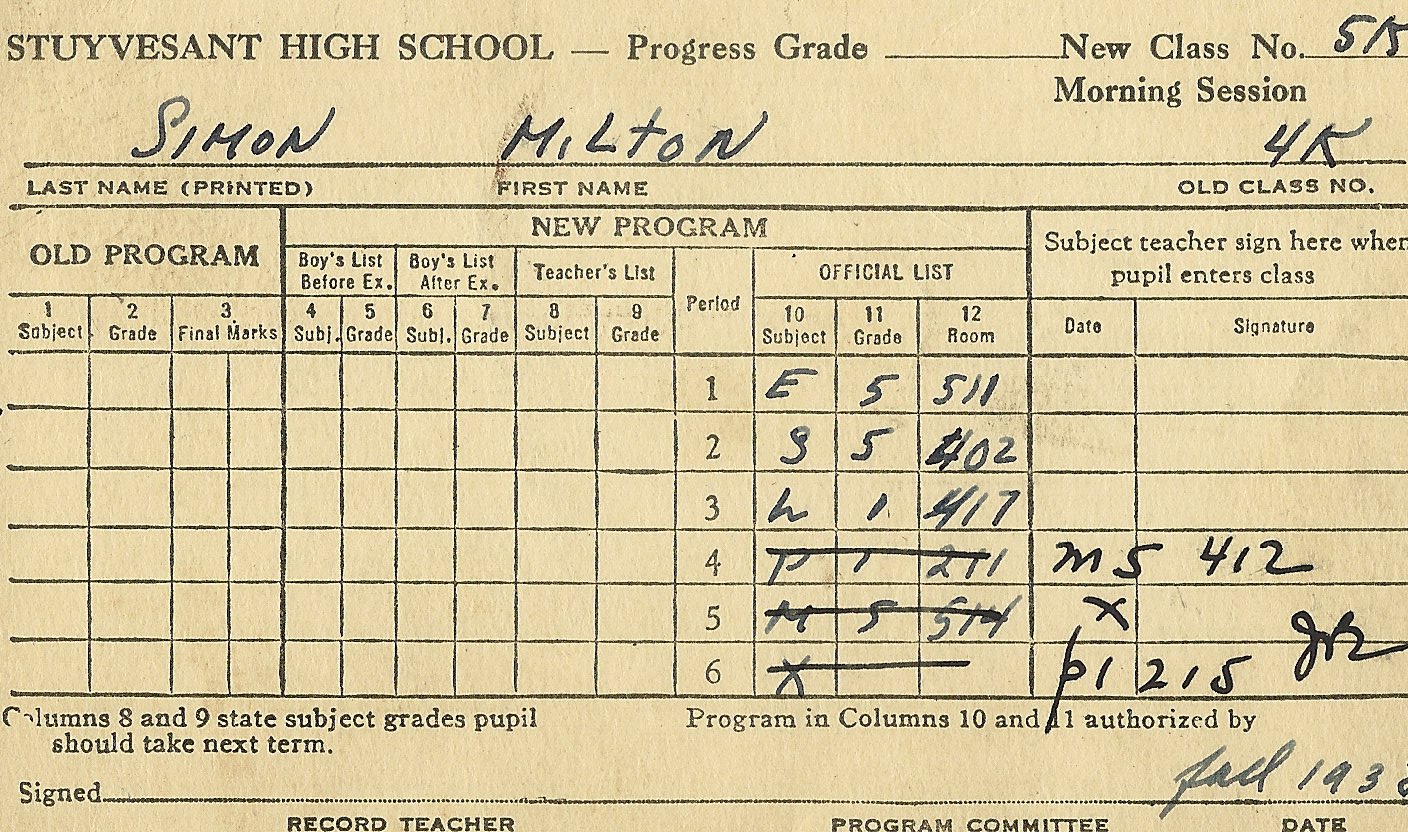 STUYVESANT HIGH SCHOOL — Progress Grade New Class No. 5K
Morning Session
SIMON MILTON 4K
LAST NAME (PRINTED) FIRST NAME OLD CLASS NO.
OLD PROGRAM NEW PROGRAM Subject teacher sign here when pupil enters class
Boy's List Before Ex. Boy's List After Ex. Teacher's List Period OFFICIAL LIST
1 Subject 2 Grade 3 Final Marks 4 Subj. 5 Grade 6 Subj. 7 Grade 8 Subject 9 Grade 10 Subject 11 Grade 12 Room Date Signature
1 E 5 511
2 S 5 402
3 L 1 417
4 P 1 211 M 5 412
5 M 5 514 X
6 X P1 215
Columns 8 and 9 state subject grades pupil should take next term.
Program in Columns 10 and 11 authorized by
fall 193
Signed
RECORD TEACHER PROGRAM COMMITTEE DATE